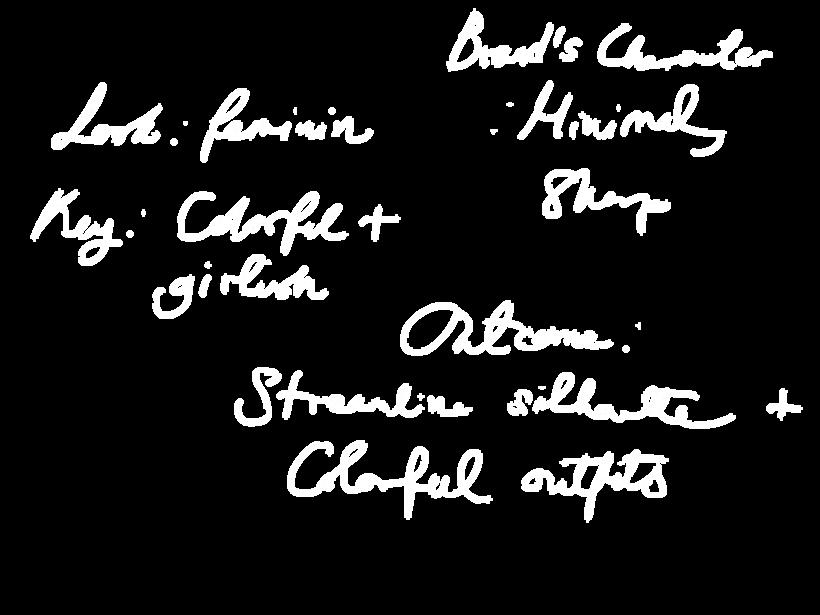 Brand's Character
: Minimal,
Sharp
Look: feminin
Key: Colorful +
girlish
Outcome:
Streamline silhoutte +
Colorful outfits